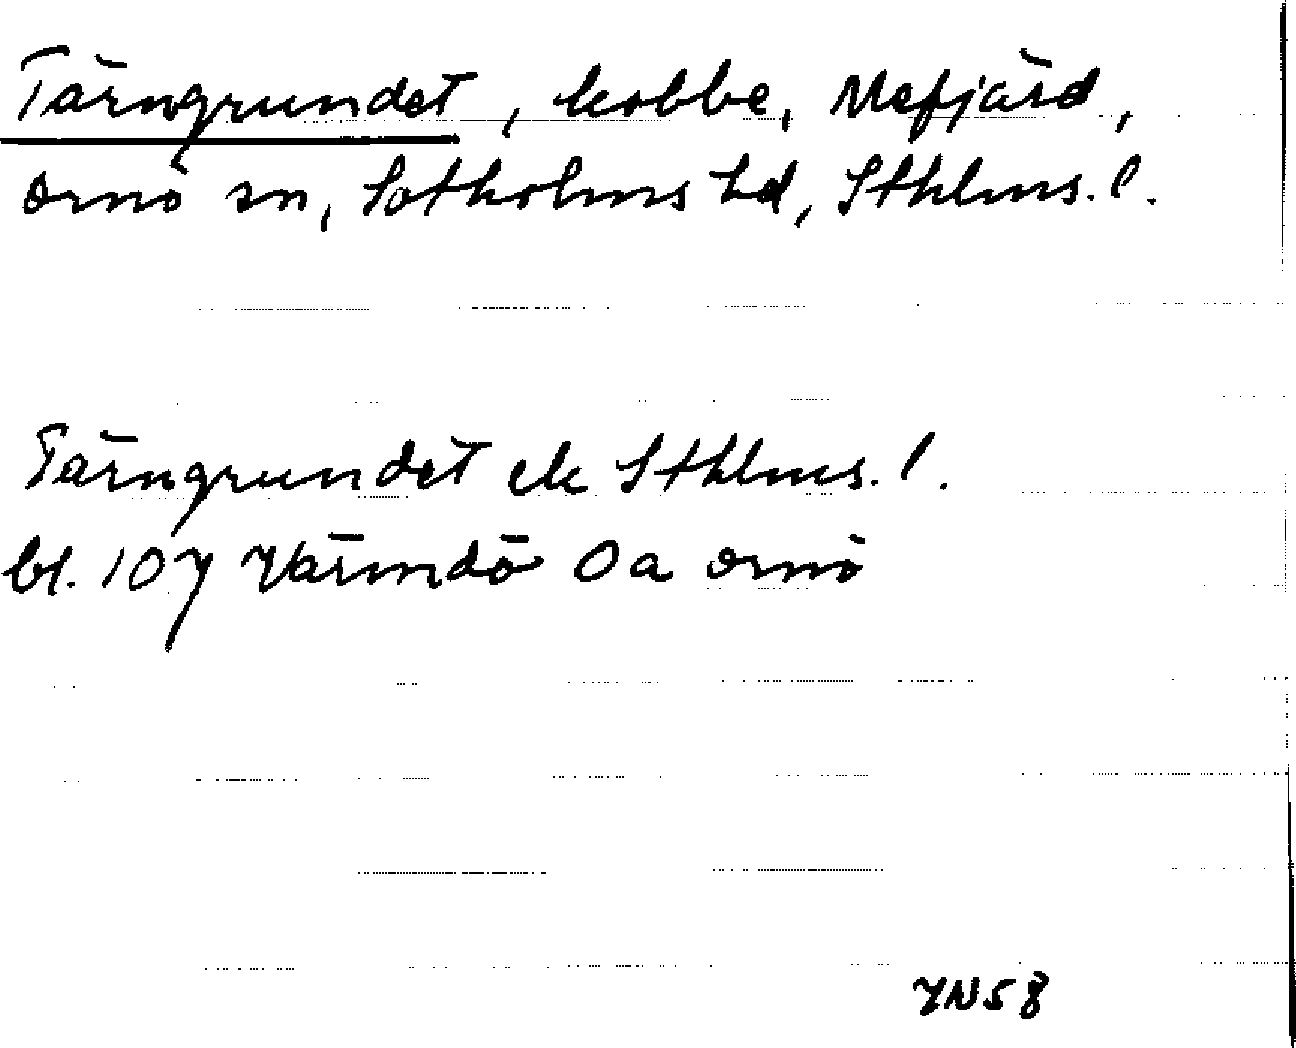 Tärngrundet, kobbe, Mefjärd,
Ornö sn, Sotholms hd, Sthlms. l.
Tärngrundet ek Sthlms. l.
bl. 107 Värmdö Oa Ornö
YN58